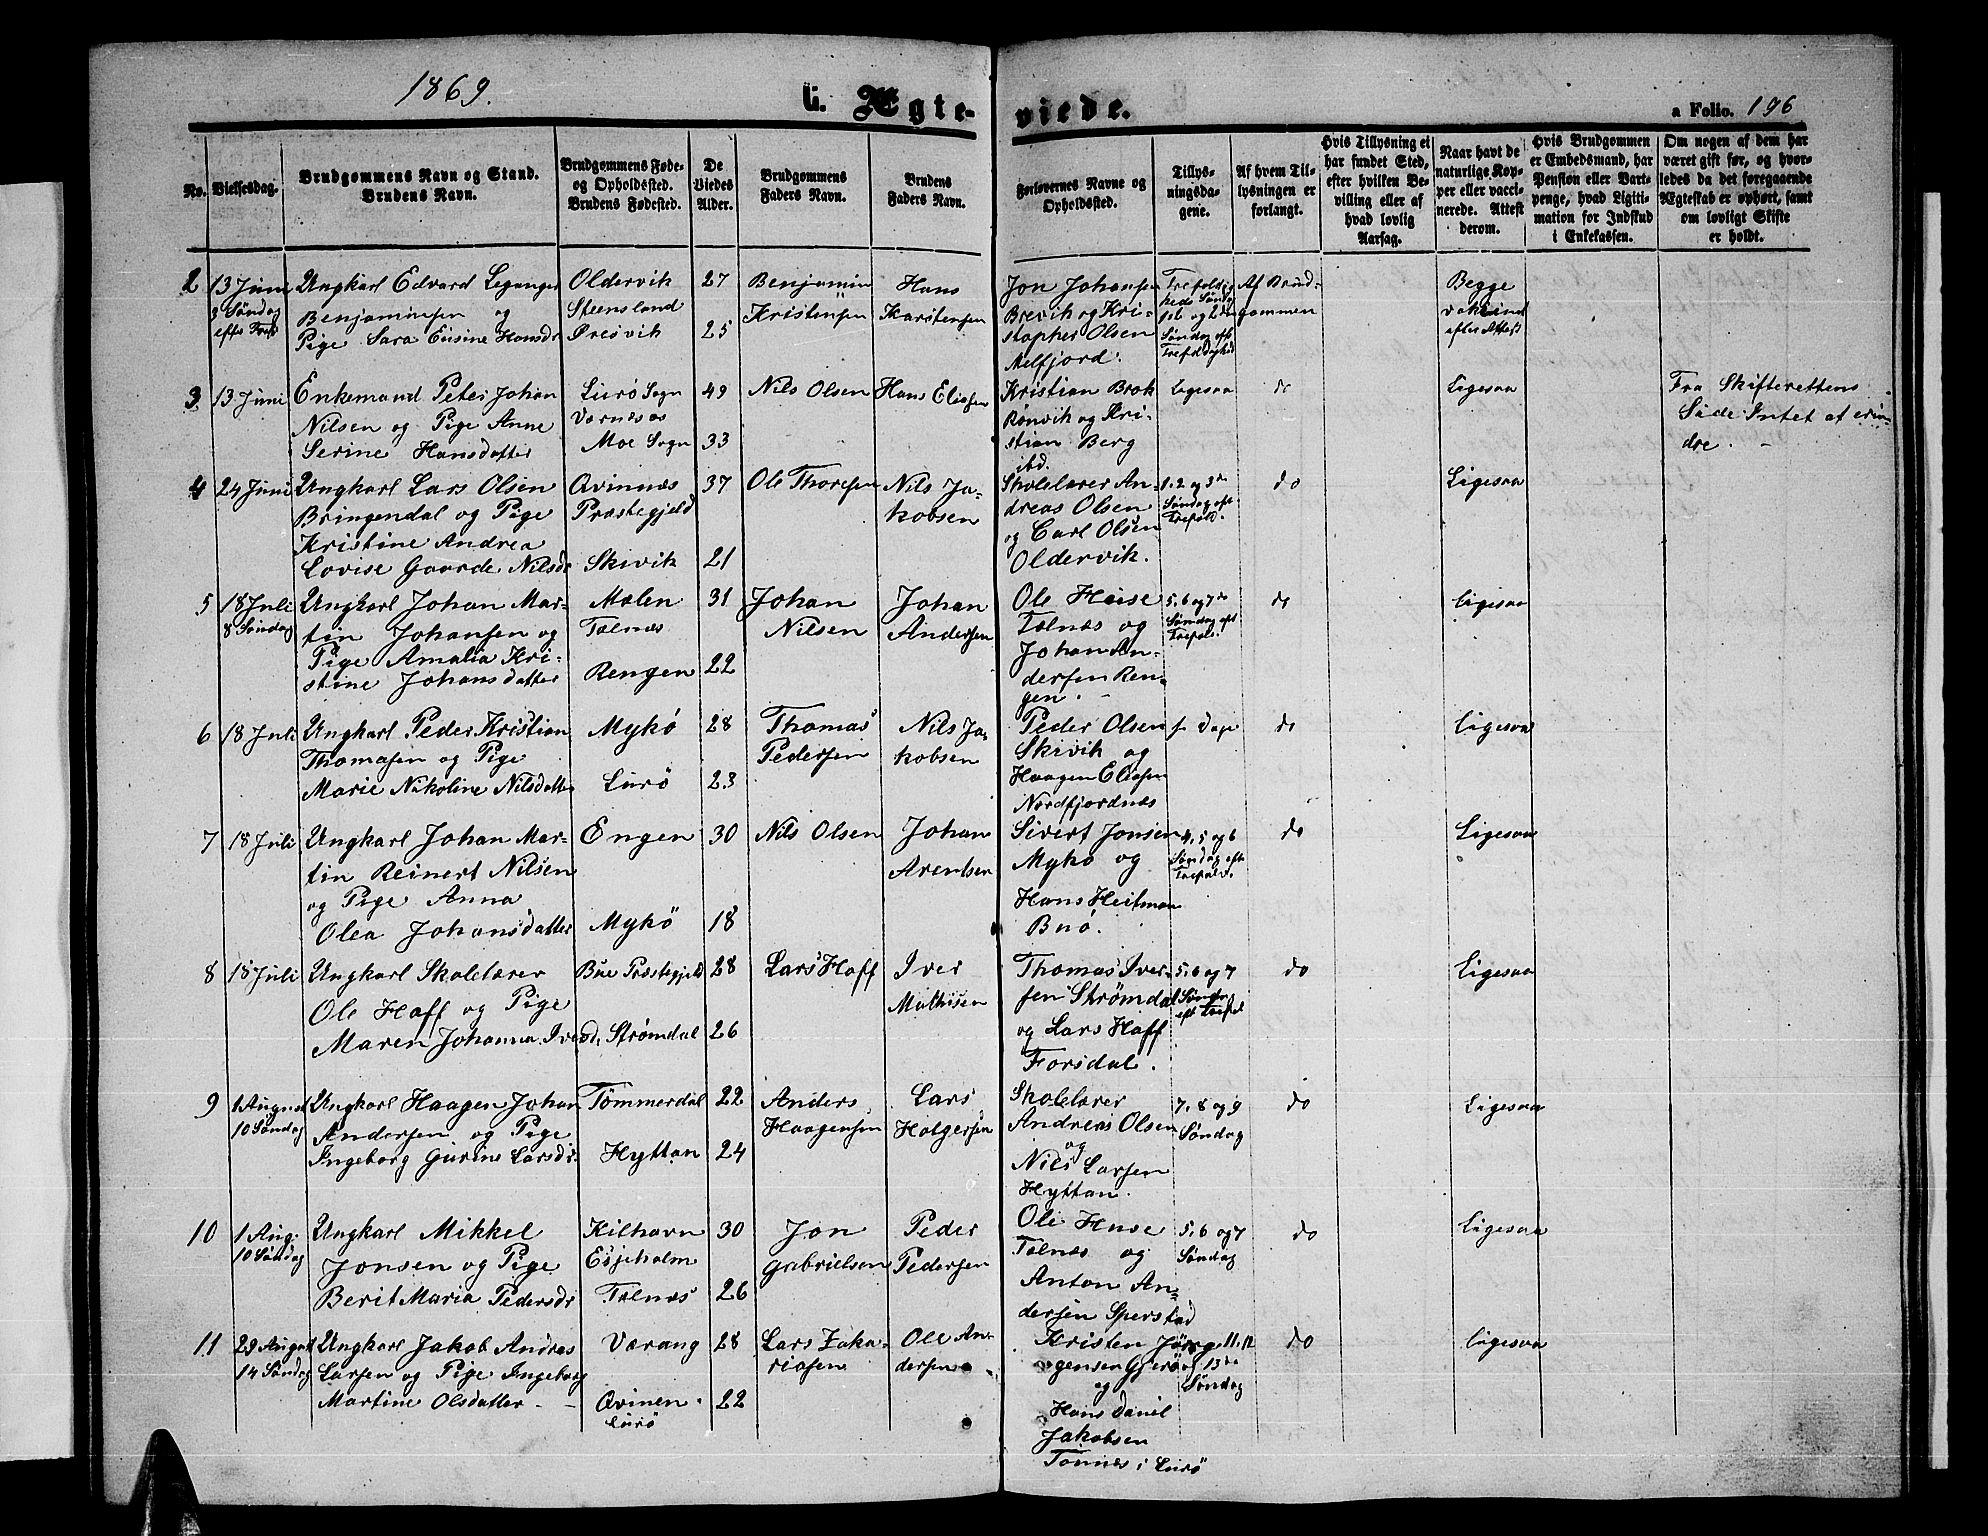 1869.
G. Ægte-
viede.
a Folio. 196
No.
Vielsesdag.
Brudgommens Navn og Stand.
Brudens Navn.
Brudgommens Føde-
og Opholdssted.
Brudens Fødested.
De
Viedes
Alder.
Brudgommens
Faders Navn.
Brudens
Faders Navn.
Forlovernes Navne og
Opholdssted.
Tillys-
ningsda-
gene.
Af hvem Til-
lysningen er
forlangt.
Hvis Tillysning ei
har fundet Sted,
efter hvilken Be-
villing eller af
hvad lovlig
Aarsag.
Naar havt de
naturlige Kop-
per eller vacci-
nerede. Attest
derom.
Hvis Brudgommen
er Embedsmand, har
Pension eller Vart-
penge, hvad Ligiti-
mation for Indskud
i Enkekassen.
Om nogen af dem har
været gift før, og hvor-
ledes da det foregaaende
Ægteskab er ophørt, samt
om lovligt Skifte
er holdt.
2
13 Juni
3 Søndag
efter Tref
Ungkarl Edvard Leganger
Benjaminsen og
Pige Sara Eusine Hansdr
Oldervik
Steensland
Øresvik
27
25
Benjamin
Kristensen
Hans
Karstensen
Jon Johansen
Brevik og Kri-
stopher Olsen
Melfjord.
Trefoldig
heds Søndag
1st og 2den
Søndag eft
Trefoldighed
Af Brud-
gommen
Begge
vakcinet
efter Attest
3
13 Juni
Enkemand Peter Johan
Nilsen og Pige Anne
Serine Hansdatter
Lurö Sogn
Varnæsås
Moe Sogn
49
33
Nils Olsen
Hans Eliasen
Kristian Brok
Rønvik og Kri-
stian Berg
ibd.
Ligesaa
do
Ligesaa
Fra Skifterettens
Side Intet at erin-
dre. -
4
24 Juni
Ungkarl Lars Olsen
Bringendal og Pige
Kristine Andrea
Lovise Gaarde Nilsdr
Qvinnæs
Præstegjeld
Skivik
37
21
Ole Thoresen
Nils Ja-
kobsen
Skolelærer An-
dreas Olsen
og Carl Olsen
Oldervik.
1. 2 og 3de
Søndag eft
Trefold.
do
Ligesaa
5
18 Juli
8 Søndag
Ungkarl Johan Mar-
tin Johansen og
Pige Amalia Kri-
stine Johansdatter
Molen
Tælnæs
Rengen
31
22
Johan
Nilsen
Johan
Andersen
Ole Huse
Tælnæs og
Johan An-
dersen Ren-
gen.
5, 6 og 7de
Søndag eft
Trefold.
do
Ligesaa
6
18 Juli
Ungkarl Peder Kristian
Thomasen og Pige
Marie Nikoline Nilsdatter
Mykö
Lurö
28
23
Thomas
Pedersen
Nils Ja-
kobsen
Peder Olsen
Skivik og
Haagen Eliasen
Nordfjordnæs
s. Dage
do
Ligesaa
7
18 Juli
Ungkarl Johan Mar-
tin Reinert Nilsen
og Pige Anna
Olea Johansdatter
Engen
Mykö
30
18
Nils Olsen
Johan
Arentsen
Sivert Jonsen
Mykö og
Hans Heitman
Buö.
4, 5 og 6
Søndag eft
Trefold.
do
Ligesaa
8
18 Juli
Ungkarl Skolelærer
Ole Haff og Pige
Maren Johanna Iversd.
Bue Præstegjeld
Strömdal
28
26
Lars Haff
Iver
Mathisen
Thomas Iver-
sen Strömdal
og Lars Haff
Forsdal.
5, 6 og 7
Søndg
eft Trefol
do
Ligesaa
9
1 August
10 Søndag
Ungkarl Haagen Johan
Andersen og Pige
Ingeborg Gurine Larsdr.
Tömmerdal
Hyttan
22
24
Anders
Haagensen
Lars
Holgersen
Skolelærer
Andreas Olsen
og
Nils Larsen
Hyttan.
7, 8 og 9
Søndag
do
Ligesaa
10
1 Aug.
10 Søndag
Ungkarl Mikkel
Jonsen og Pige
Berit Maria Pedersdr
Kilhavn
Esjeholm
Tælnæs
30
26
Jon
Gabrielsen
Peder
Pedersen
Ole Huse
Tælnæs og
Anton An-
dersen Sperstad
5, 6 og 7
Søndag
do
Ligesaa
11
29 August
14 Søndag
Ungkarl Jakob Andreas
Larsen og Pige Ingeborg
Martine Olsdatter -
Værang
Qvinen
Lurö
28
22
Lars Zaka-
riasen
Ole An-
dersen
Kristen Jörg-
gensen Gjerö
og
Hans Daniel
Jakobsen
Tonnæs i Lurö
11, 12
og 13de
Søndag
do
Ligesaa